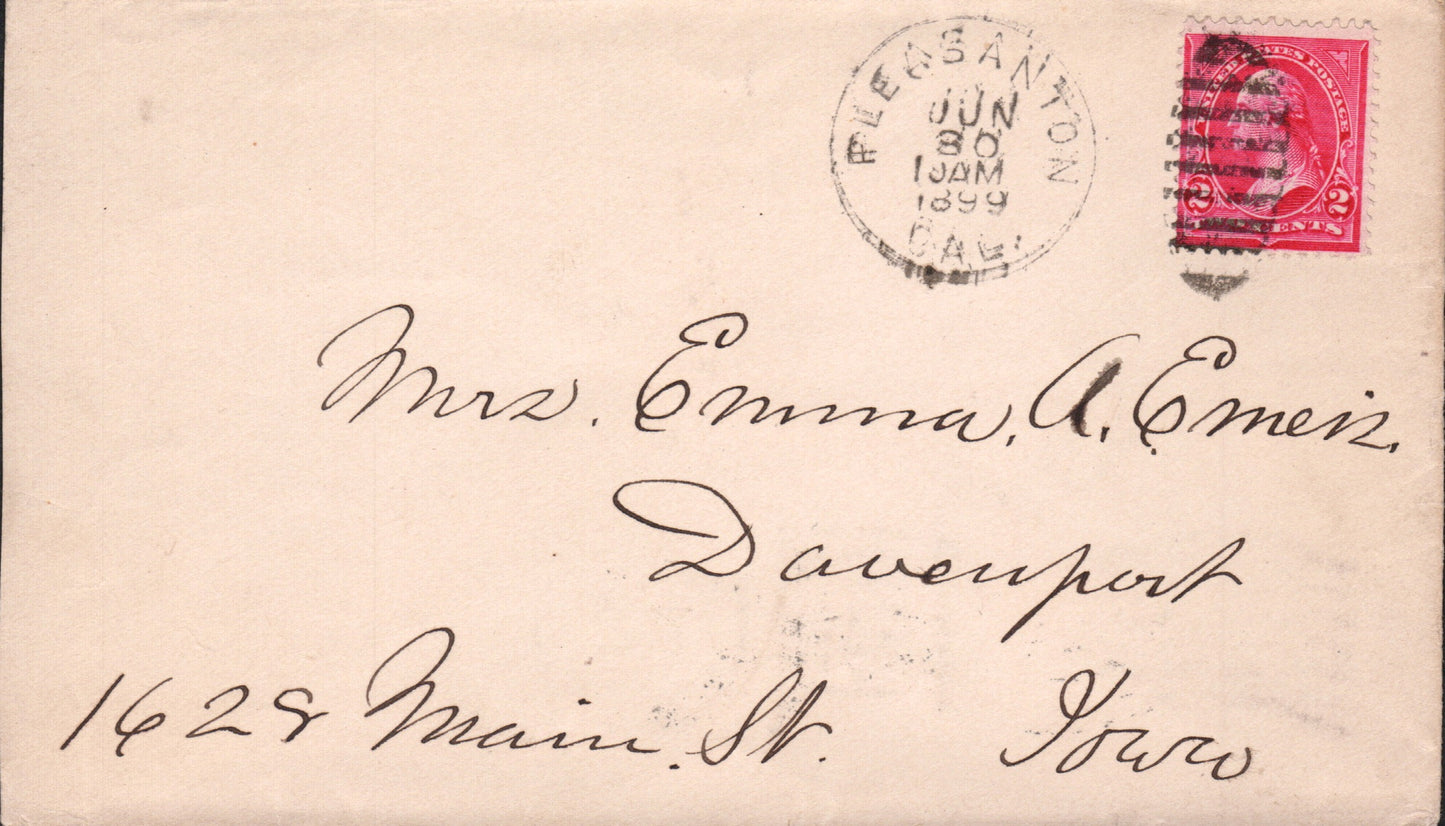 PLEASANTON
JUN
30
10AM
1899
CAL.
UNITED STATES POSTAGE
2 2
CENTS
Mrs. Emma. A. Emeis.
Davenport
1628 Main. St. Iowa